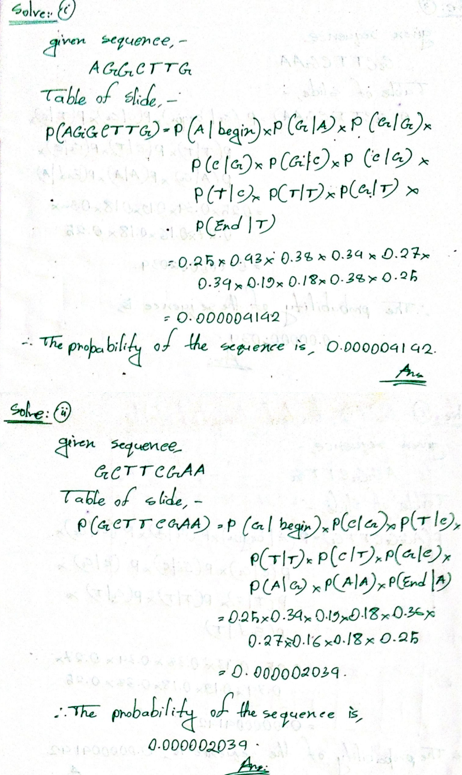 Solve:- (i)
given sequence, -
AGGCTTG
Table of slide, -
P(AGGCTTG) = P(A|begin) x P(G|A) x P(G|G) x
P(C|G) x P(G|C) x P(C|G) x
P(T|C) x P(T|T) x P(G|T) x
P(End|T)
= 0.25 x 0.43 x 0.38 x 0.34 x 0.27 x
0.34 x 0.19 x 0.18 x 0.38 x 0.25
= 0.000004142
∴ The propability of the sequence is, 0.000004142.
Ans
Solve: (ii)
given sequence
GCTTCGAA
Table of slide, -
P(GCTTCGAA) = P(G|begin) x P(C|G) x P(T|C) x
P(T|T) x P(C|T) x P(G|C) x
P(A|G) x P(A|A) x P(End|A)
= 0.25 x 0.34 x 0.19 x 0.18 x 0.36 x
0.27 x 0.16 x 0.18 x 0.25
= 0.000002039.
∴ The probability of the sequence is,
0.000002039.
Ans: